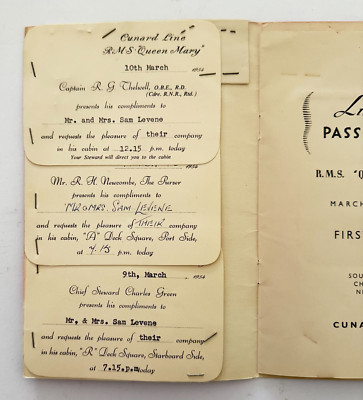 Cunard Line
R.M.S "Queen Mary"
10th March 1954
Captain R. G Thelwell, O.B.E., R.D.
(Cdre. R.N.R., Rtd.)
presents his compliments to
Mr. and Mrs. Sam Levene
and requests the pleasure of their company
in his cabin at 12.15 p.m. today
Your Steward will direct you to the cabin
Mr. R. H. Newcombe, The Purser
presents his compliments to
MR & MRS SAM LEVENE
and requests the pleasure of THEIR company
in his cabin, "A" Deck Square, Port Side,
at 7.15 p.m today
9th, March 1954
Chief Steward Charles Green
presents his compliments to
Mr, & Mrs. Sam Levene
and requests the pleasure of their company
in his cabin, "R" Deck Square, Starboard Side,
at 7.15.p.m today
PASS
R.M.S. "Q
MARCH
FIRS
SOU
CH
NE
CUNA